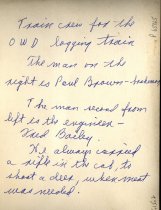 Train crew for the
OWD logging train
The man on the
right is Paul Brown - brakeman
The man second from
left is the engineer -
Fred Bailey
He always carried
a rifle in the cab, to
shoot a deer, when meat
was needed.